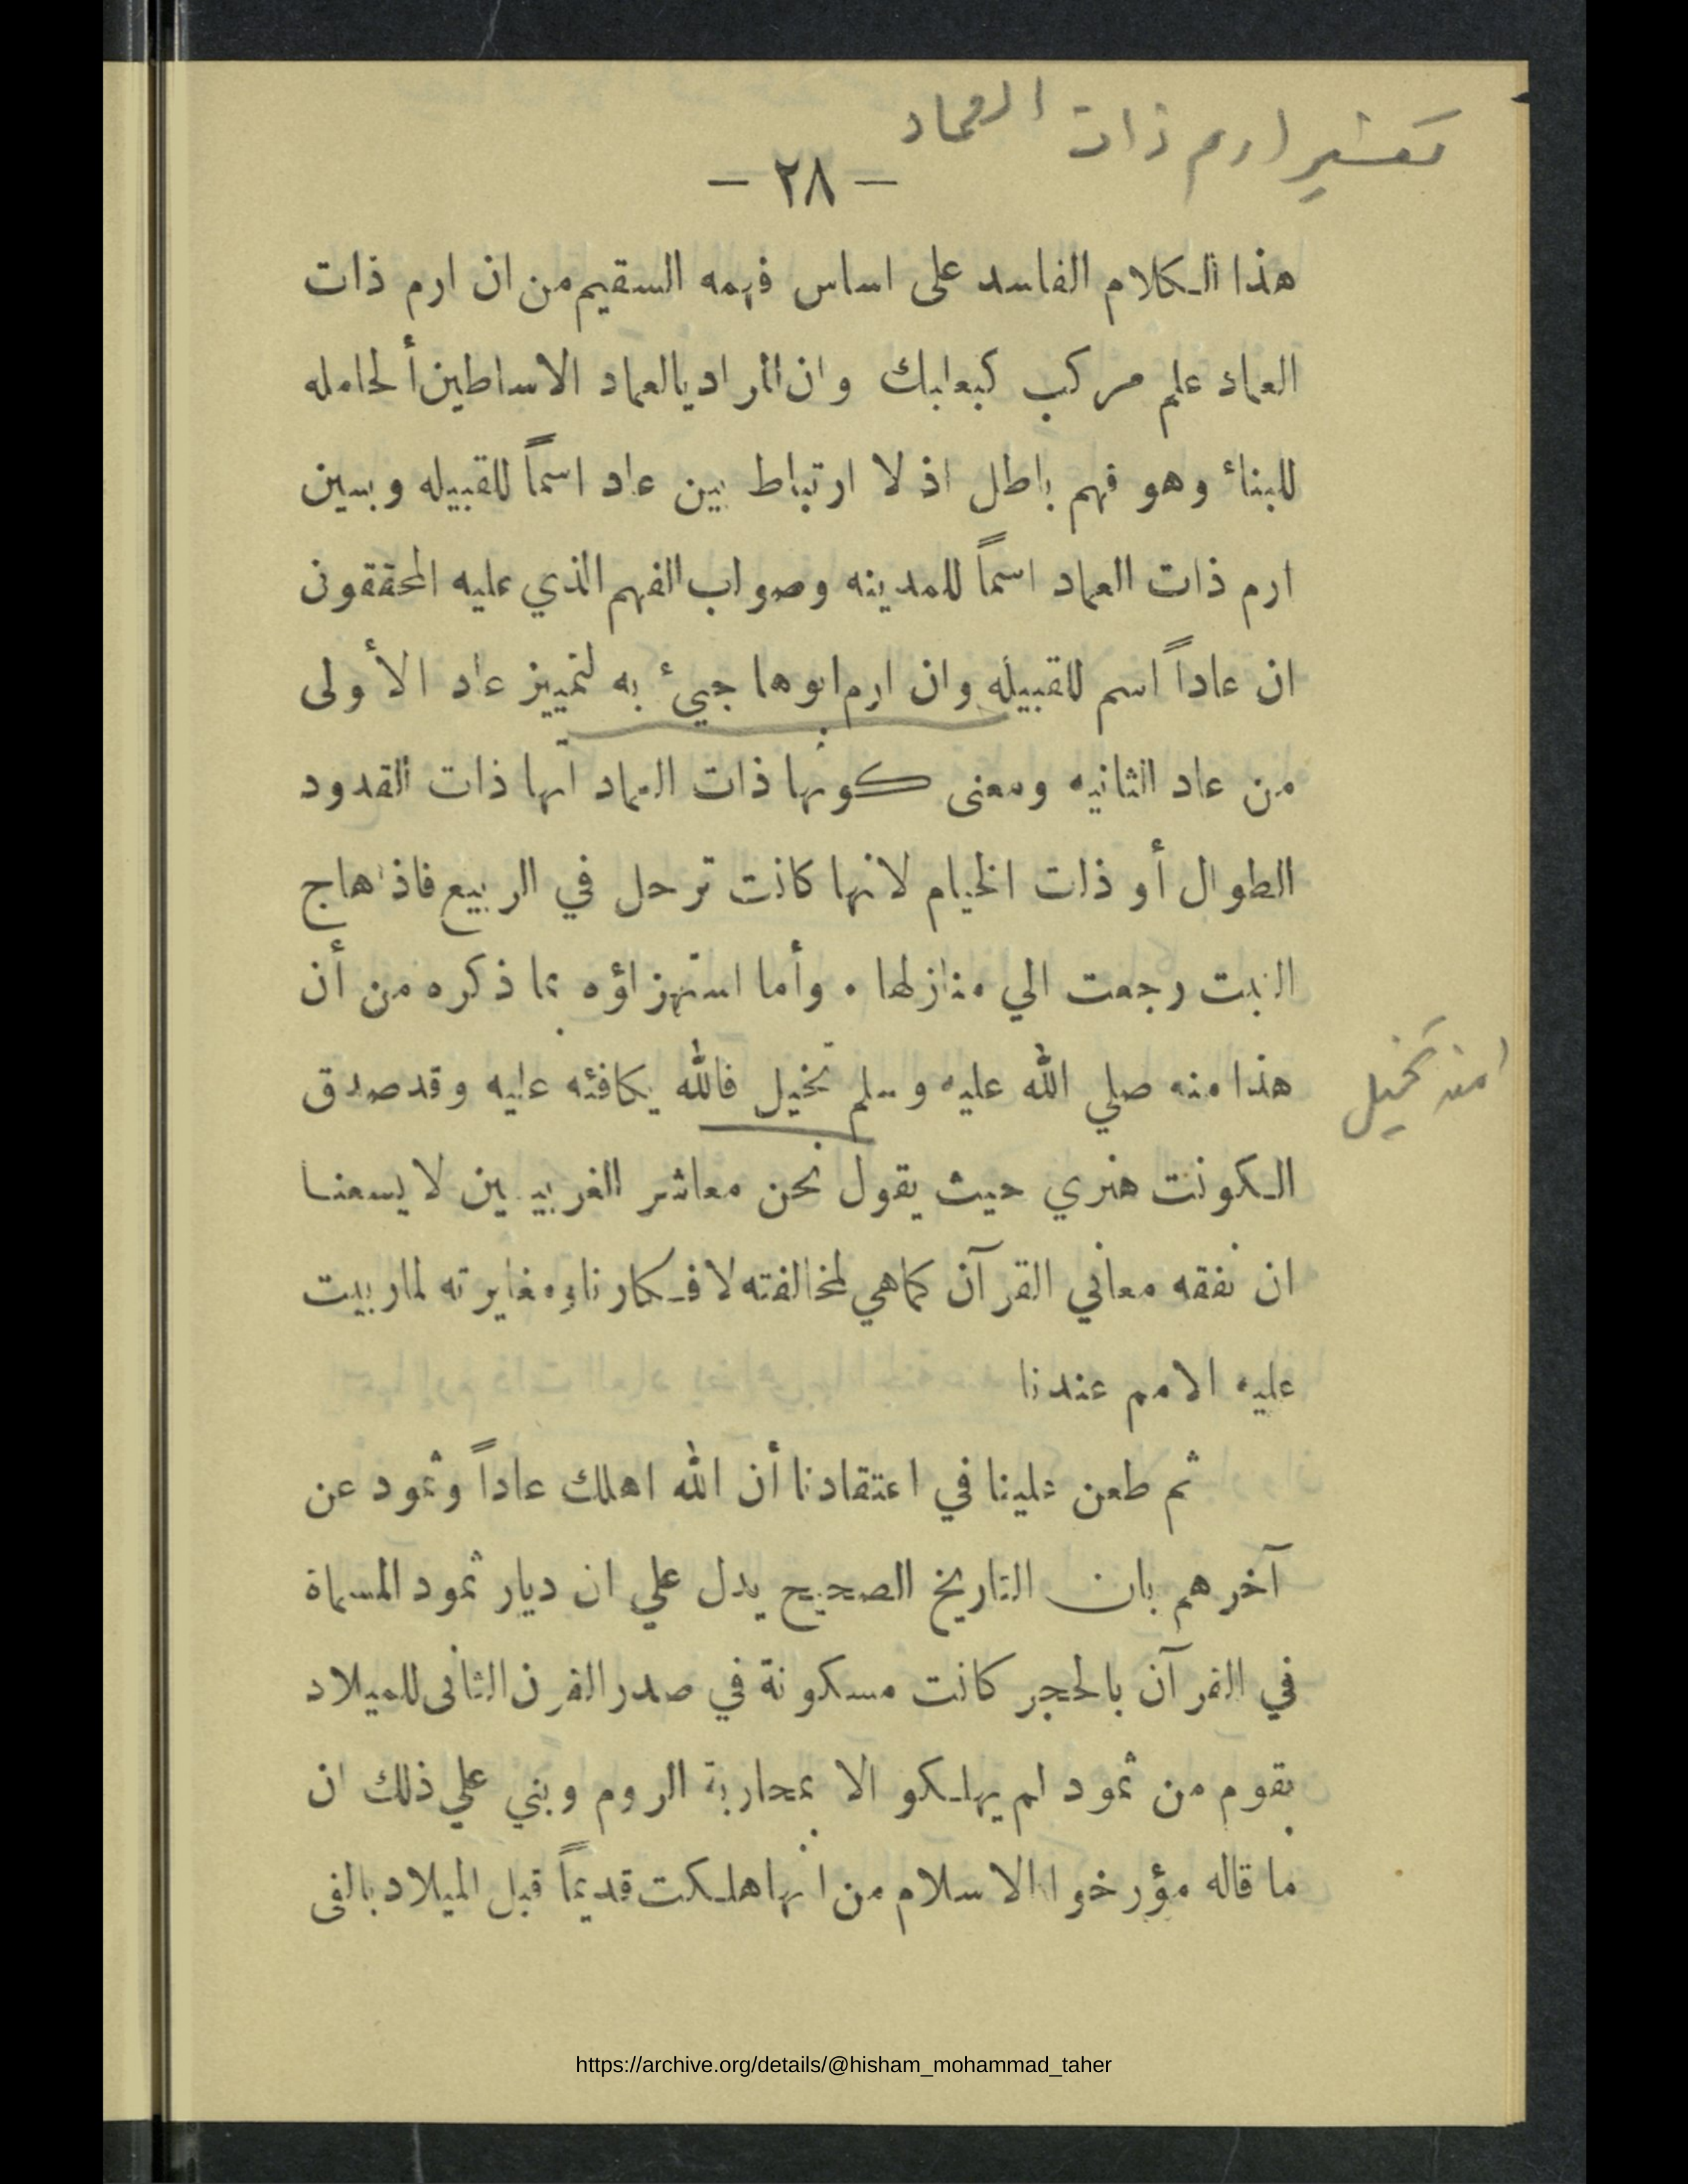 تفسير ارم ذات العماد
— ٢٨ —
هذا الكلام الفاسد على اساس فهمه السقيم من ان ارم ذات
العماد علم مركب كبعلبك وان المراد بالعماد الاساطين ألحامله
للبناء وهو فهم باطل اذ لا ارتباط بين عاد اسماً للقبيله وبين
ارم ذات العماد اسماً للمدينه وصواب الفهم الذي عليه المحققون
ان عاداً اسم للقبيله وان ارم ابوها جيئ به لتمييز عاد الأولى
من عاد الثانيه ومعنى كونها ذات العماد انها ذات القدود
الطوال أو ذات الخيام لانها كانت ترحل في الربيع فاذا هاج
النبت رجعت الي منازلها . وأما استهزاؤه بما ذكره من أن
هذا منه صلي الله عليه وسلم تخيل فالله يكافئه عليه وقد صدق
امنه تخيل
الكونت هنري حيث يقول نحن معاشر الغربيين لا يسعنا
ان نفقه معاني القرآن كماهي لمخالفته لافكارنا ومغايرته لماربيت
عليه الامم عندنا
ثم طعن علينا في اعتقادنا أن الله اهلك عاداً وثمود عن
آخرهم بان التاريخ الصحيح يدل علي ان ديار ثمود المسماة
في القرآن بالحجر كانت مسكونة في صدر القرن الثانى للميلاد
بقوم من ثمود لم يهلكو الا بمحاربة الروم وبني علي ذلك ان
ما قاله مؤرخوا الاسلام من انها هلكت قديماً قبل الميلاد بالفى
https://archive.org/details/@hisham_mohammad_taher